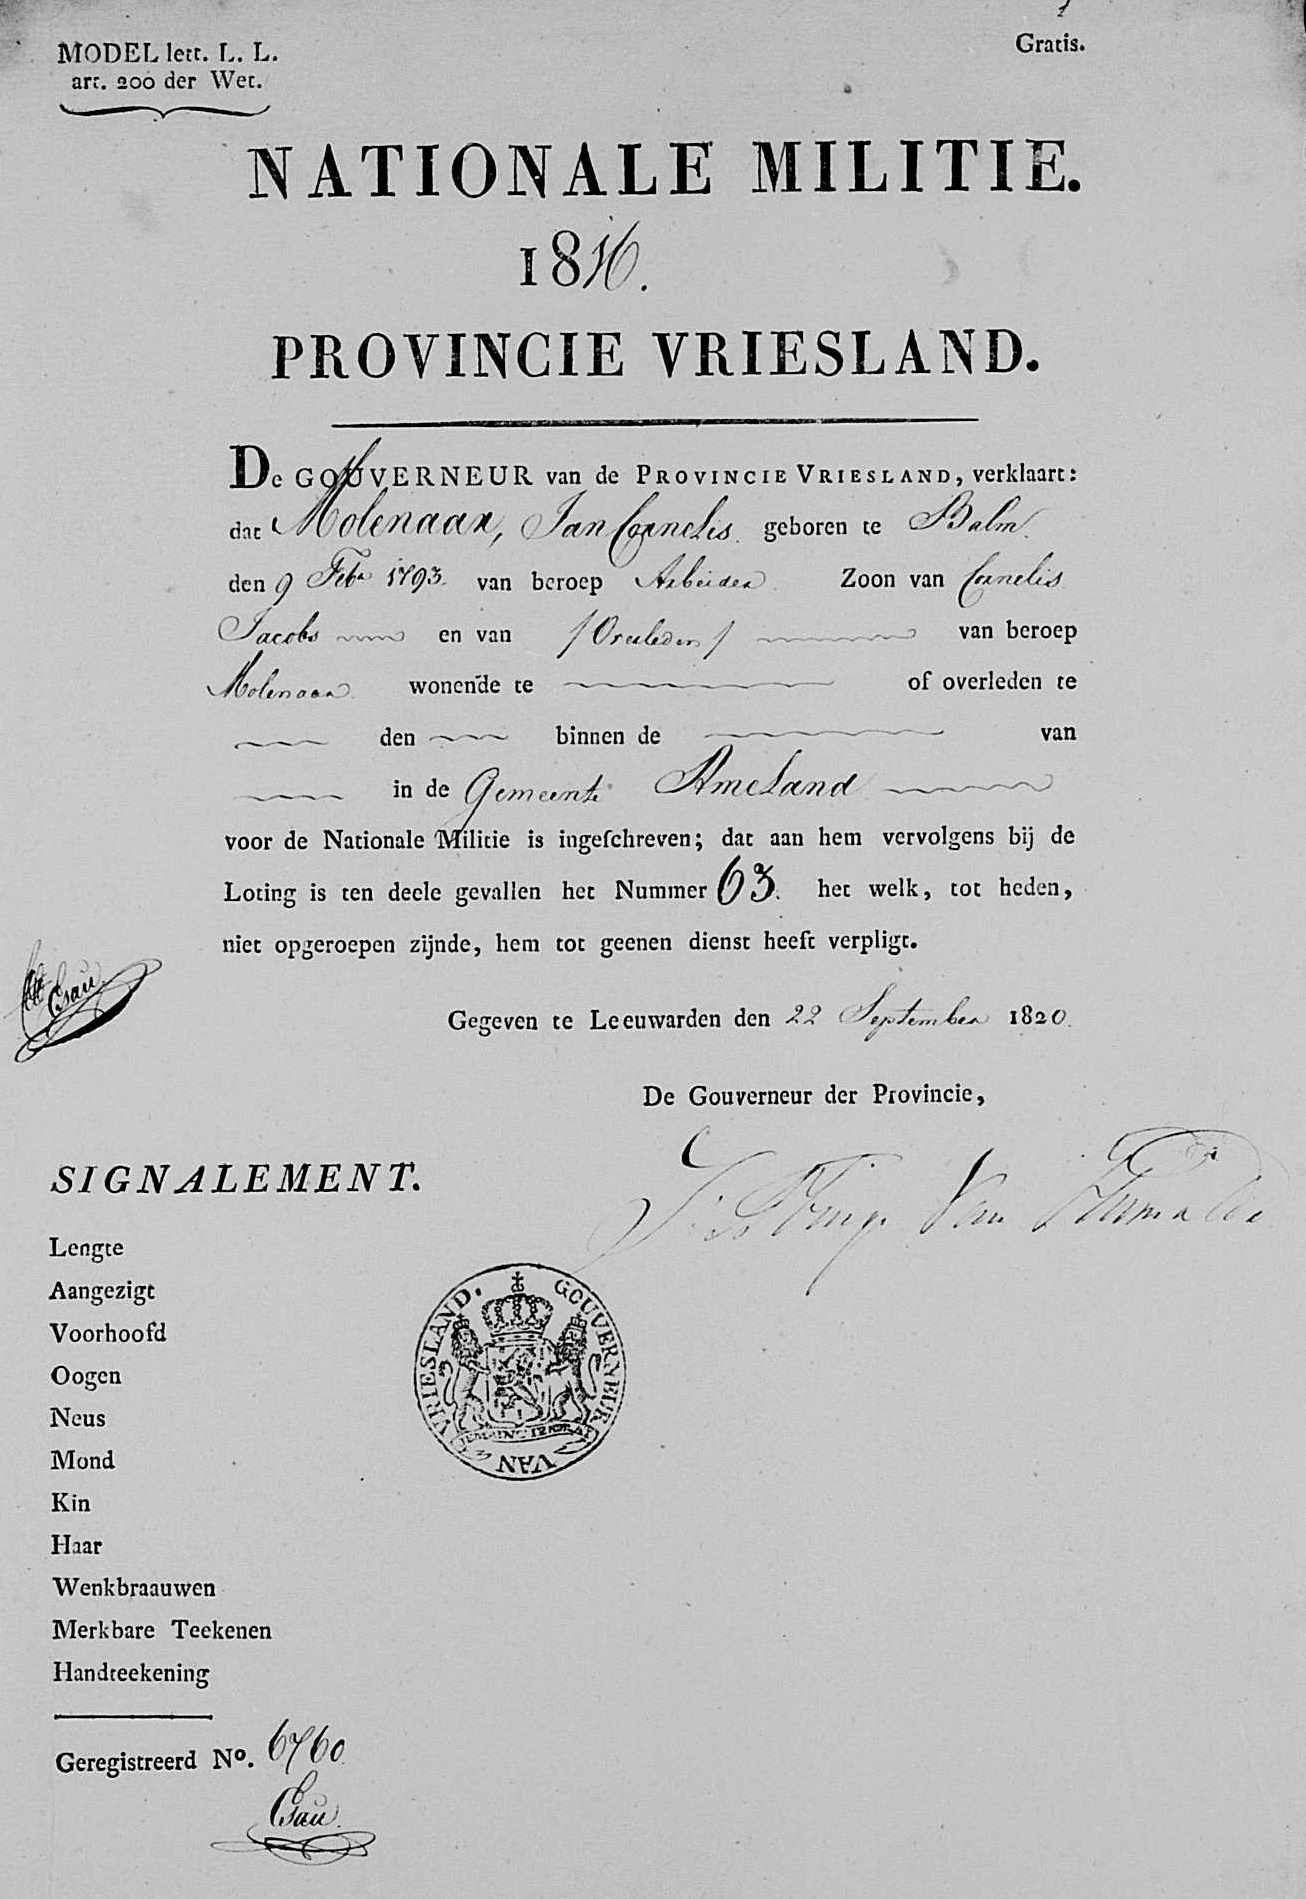 MODEL lett. L. L.
art. 200 der Wet.
Gratis.
NATIONALE MILITIE.
1816.
PROVINCIE VRIESLAND.
De GOUVERNEUR van de PROVINCIE VRIESLAND, verklaart:
dat Molenaar, Jan Cornelis geboren te Balm
den 9 Febr 1793. van beroep Arbeider Zoon van Cornelis
Jacobs en van /Overleden/ van beroep
Molenaar wonende te of overleden te
den binnen de van
in de Gemeente Ameland
voor de Nationale Militie is ingeſchreven; dat aan hem vervolgens bij de
Loting is ten deele gevallen het Nummer 63. het welk, tot heden,
niet opgeroepen zijnde, hem tot geenen dienst heeft verpligt.
Esau
Gegeven te Leeuwarden den 22 September 1820.
De Gouverneur der Provincie,
Van
SIGNALEMENT.
Lengte
Aangezigt
Voorhoofd
Oogen
Neus
Mond
Kin
Haar
Wenkbraauwen
Merkbare Teekenen
Handteekening
GOUVERNEUR VAN VRIESLAND.
Geregistreerd No. 6760
Esau